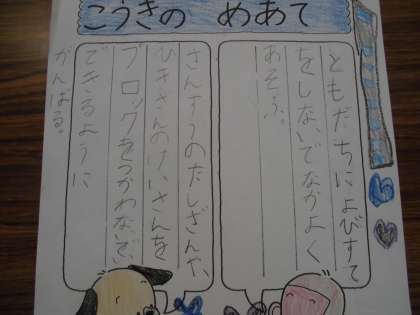 こうきの　めあて
ともだちによびすて
をしないでなかよく
あそぶ。
さんすうのたしざんや、
ひきざんのけいさんを
ブロックをつかわないで、
できるように
がんばる。